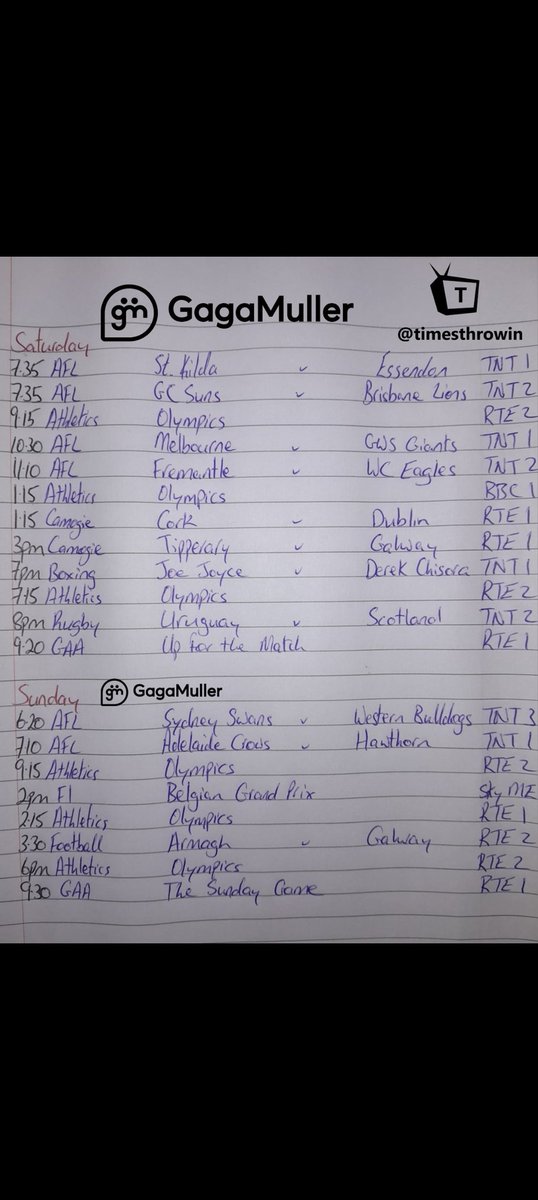 gm GagaMuller
T
@timesthrowin
Saturday
7.35 AFL St. Kilda v Essendon TNT 1
7.35 AFL GC Suns v Brisbane Lions TNT 2
9.15 Athletics Olympics RTE 2
10.30 AFL Melbourne v GWS Giants TNT 1
11.10 AFL Fremantle v WC Eagles TNT 2
1.15 Athletics Olympics BBC 1
1.15 Camogie Cork v Dublin RTE 1
3pm Camogie Tipperary v Galway RTE 1
7pm Boxing Joe Joyce v Derek Chisora TNT 1
7.15 Athletics Olympics RTE 2
8pm Rugby Uruguay v Scotland TNT 2
9.20 GAA Up for the Match RTE 1
Sunday gm GagaMuller
6.20 AFL Sydney Swans v Western Bulldogs TNT 3
7.10 AFL Adelaide Crows v Hawthorn TNT 1
9.15 Athletics Olympics RTE 2
2pm F1 Belgian Grand Prix Sky ME
2.15 Athletics Olympics RTE 1
3.30 Football Armagh v Galway RTE 2
6pm Athletics Olympics RTE 2
9.30 GAA The Sunday Game RTE 1